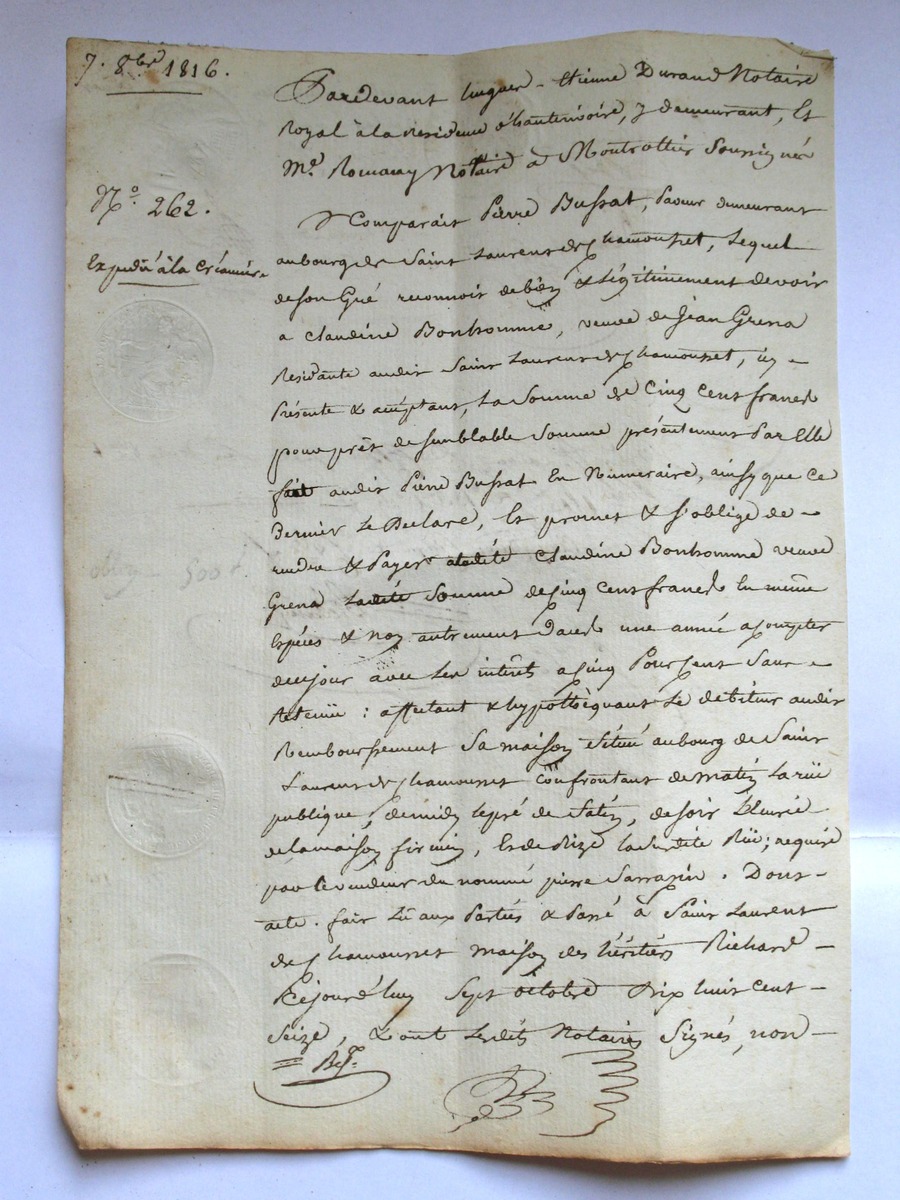 7. 8bre 1816.
Pardevant hugues - Etienne Durand Notaire
Royal à la residence d'hauterivoire, y demeurant, Et
Me. Romany Notaire à Montrottier Soussignés
No. 262.
Comparait Pierre Bussat, demeurant
Expedié à la Créancière
au bourg de Saint Laurent de Chamousset, Lequel
de son Gré reconnoit debien & Légitimement devoir
a Claudine Bonhomme, veuve de Jean Grena
Residante audit Saint Laurent de Chamousset, ici -
Présente & acceptant, La Somme de Cinq Cent francs
pour prêt de semblable Somme présentement Par Elle
fait audit Piere Bussat En Numeraire, ainsy que Ce
Dernier Le Declare, Et promet & s'oblige de -
rendre & Payer aladite Claudine Bonhomme veuve
oblig. 500 f.
Grena Ladite Somme de Cinq Cent francs En même
Espéces & non autrement dans une année a Compter
de ce jour avec Les intérêts a Cinq Pour Cent Sans -
Retenüe : affectant & hypothèquant Le débiteur audit
Remboursement Sa maison Située au bourg de Saint
Laurent de Chamousset Confrontant de matin La rüe
publique, de midy le pré de, de soir L'Ecurie
de la maison firmin, Et de Bize La Susdite Rüe; acquise
par le vendeur du nommé pierre Sarrazin. Dont -
acte. fait Lû aux Parties & Passé à Saint Laurent
de Chamousset maison des héritiers Richard -
Cejourd'huy Sept octobre Dix huit Cent -
Seize, & ont Lesdits Notaires Signés, non -